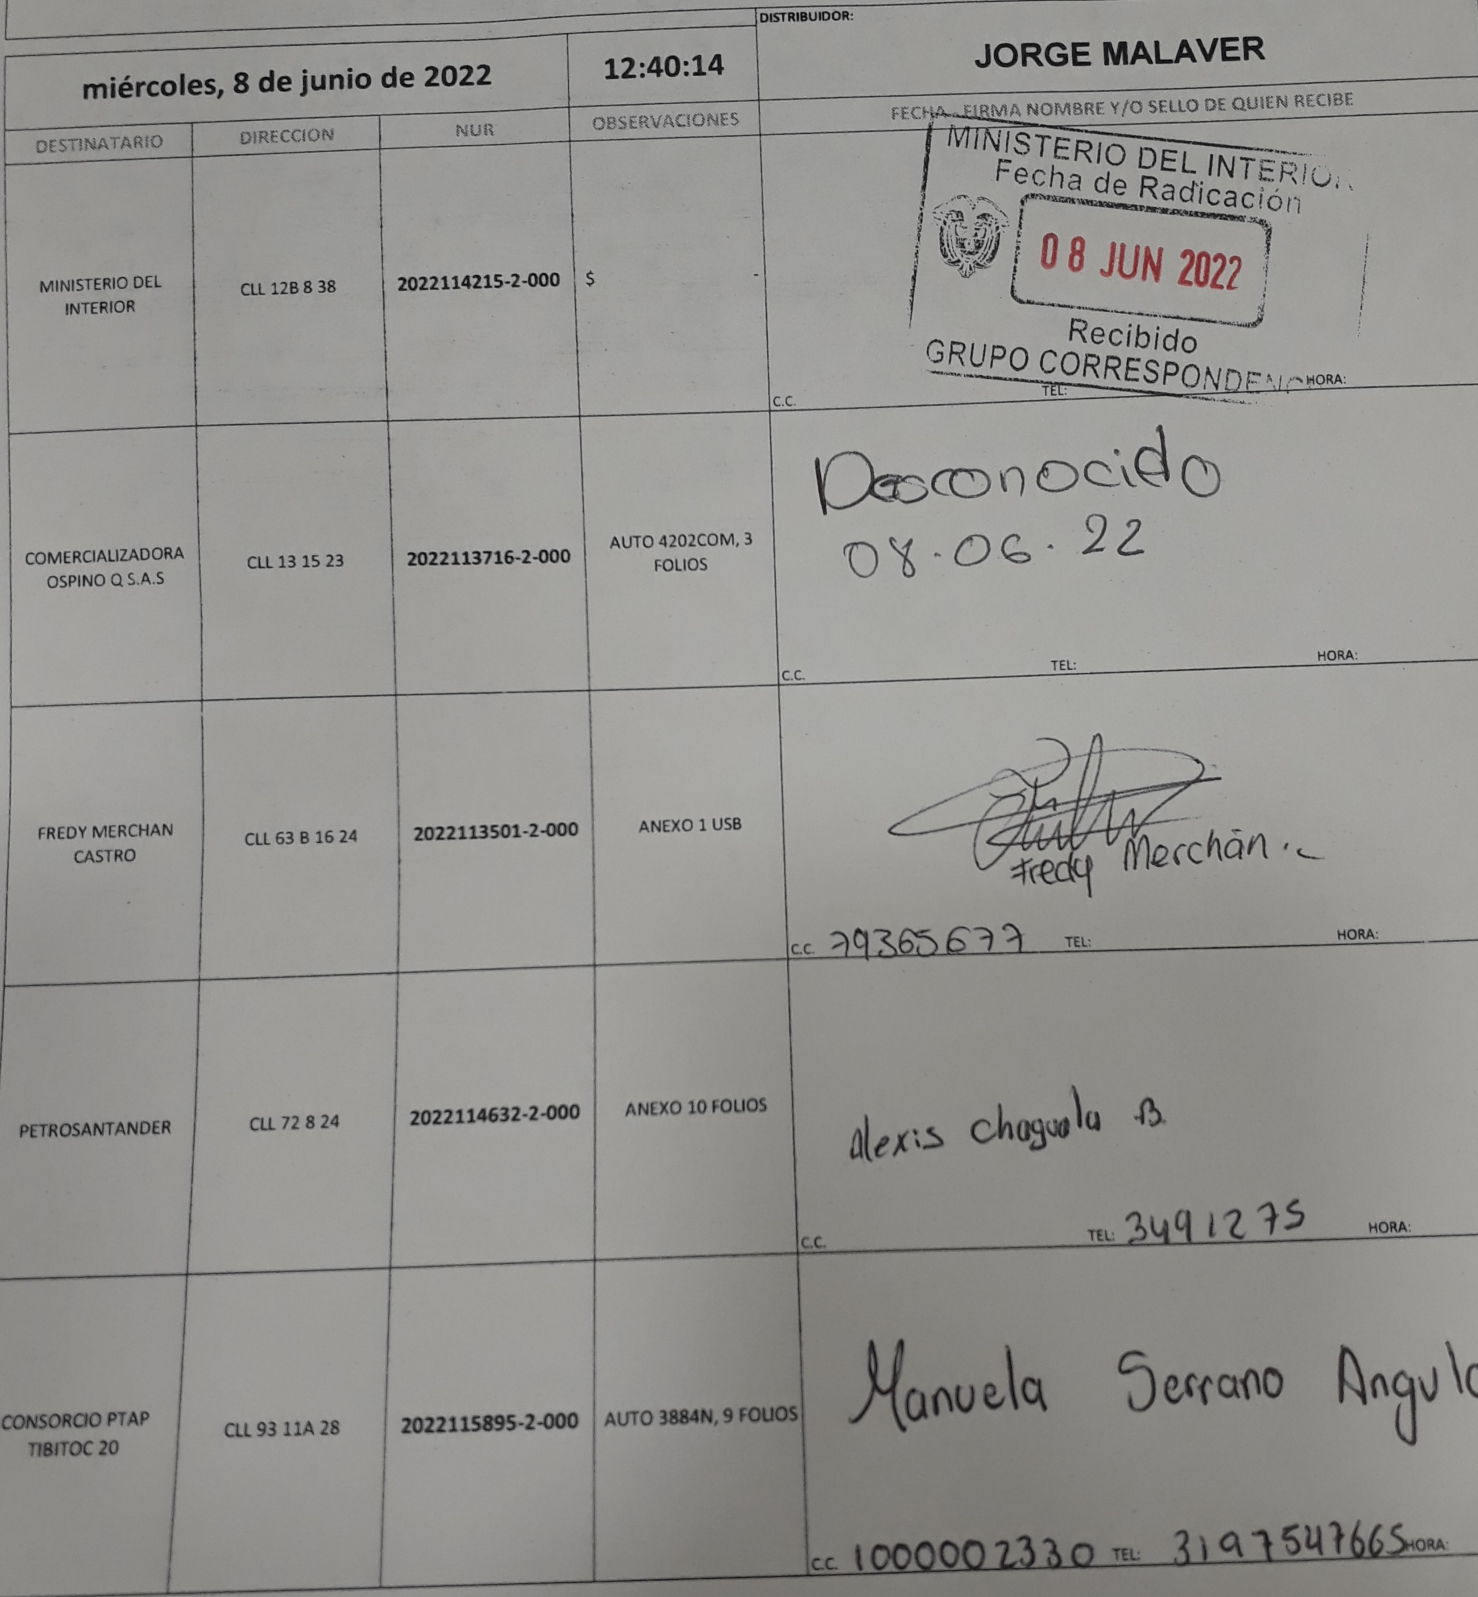 DISTRIBUIDOR:
miércoles, 8 de junio de 2022
12:40:14
JORGE MALAVER
DESTINATARIO
DIRECCION
NUR
OBSERVACIONES
FECHA - FIRMA NOMBRE Y/O SELLO DE QUIEN RECIBE
MINISTERIO DEL
INTERIOR
CLL 12B 8 38
2022114215-2-000
$ -
MINISTERIO DEL INTERIOR
Fecha de Radicación
08 JUN 2022
Recibido
GRUPO CORRESPONDENC
C.C.
TEL:
HORA:
COMERCIALIZADORA
OSPINO Q S.A.S
CLL 13 15 23
2022113716-2-000
AUTO 4202COM, 3
FOLIOS
Desconocido
08.06.22
C.C.
TEL:
HORA:
FREDY MERCHAN
CASTRO
CLL 63 B 16 24
2022113501-2-000
ANEXO 1 USB
Fredy Merchán
C.C. 79365677
TEL:
HORA:
PETROSANTANDER
CLL 72 8 24
2022114632-2-000
ANEXO 10 FOLIOS
Alexis Chaguala B.
C.C.
TEL: 3491275
HORA:
CONSORCIO PTAP
TIBITOC 20
CLL 93 11A 28
2022115895-2-000
AUTO 3884N, 9 FOLIOS
Manuela Serrano Angulo
CC 1000002330 TEL: 3197547665 HORA: